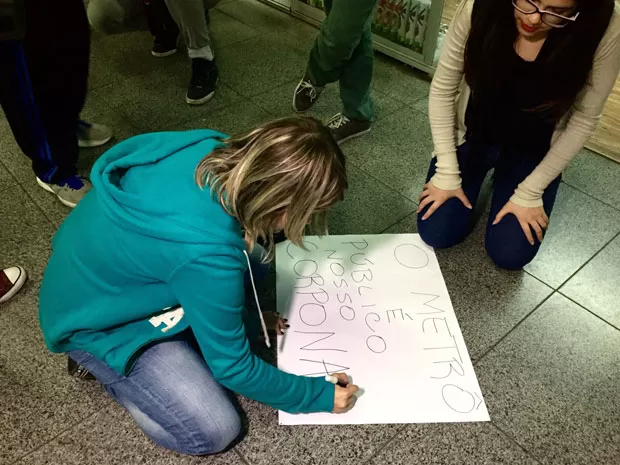 O METRÔ
É
PÚBLICO
NOSSO
CORPO NA